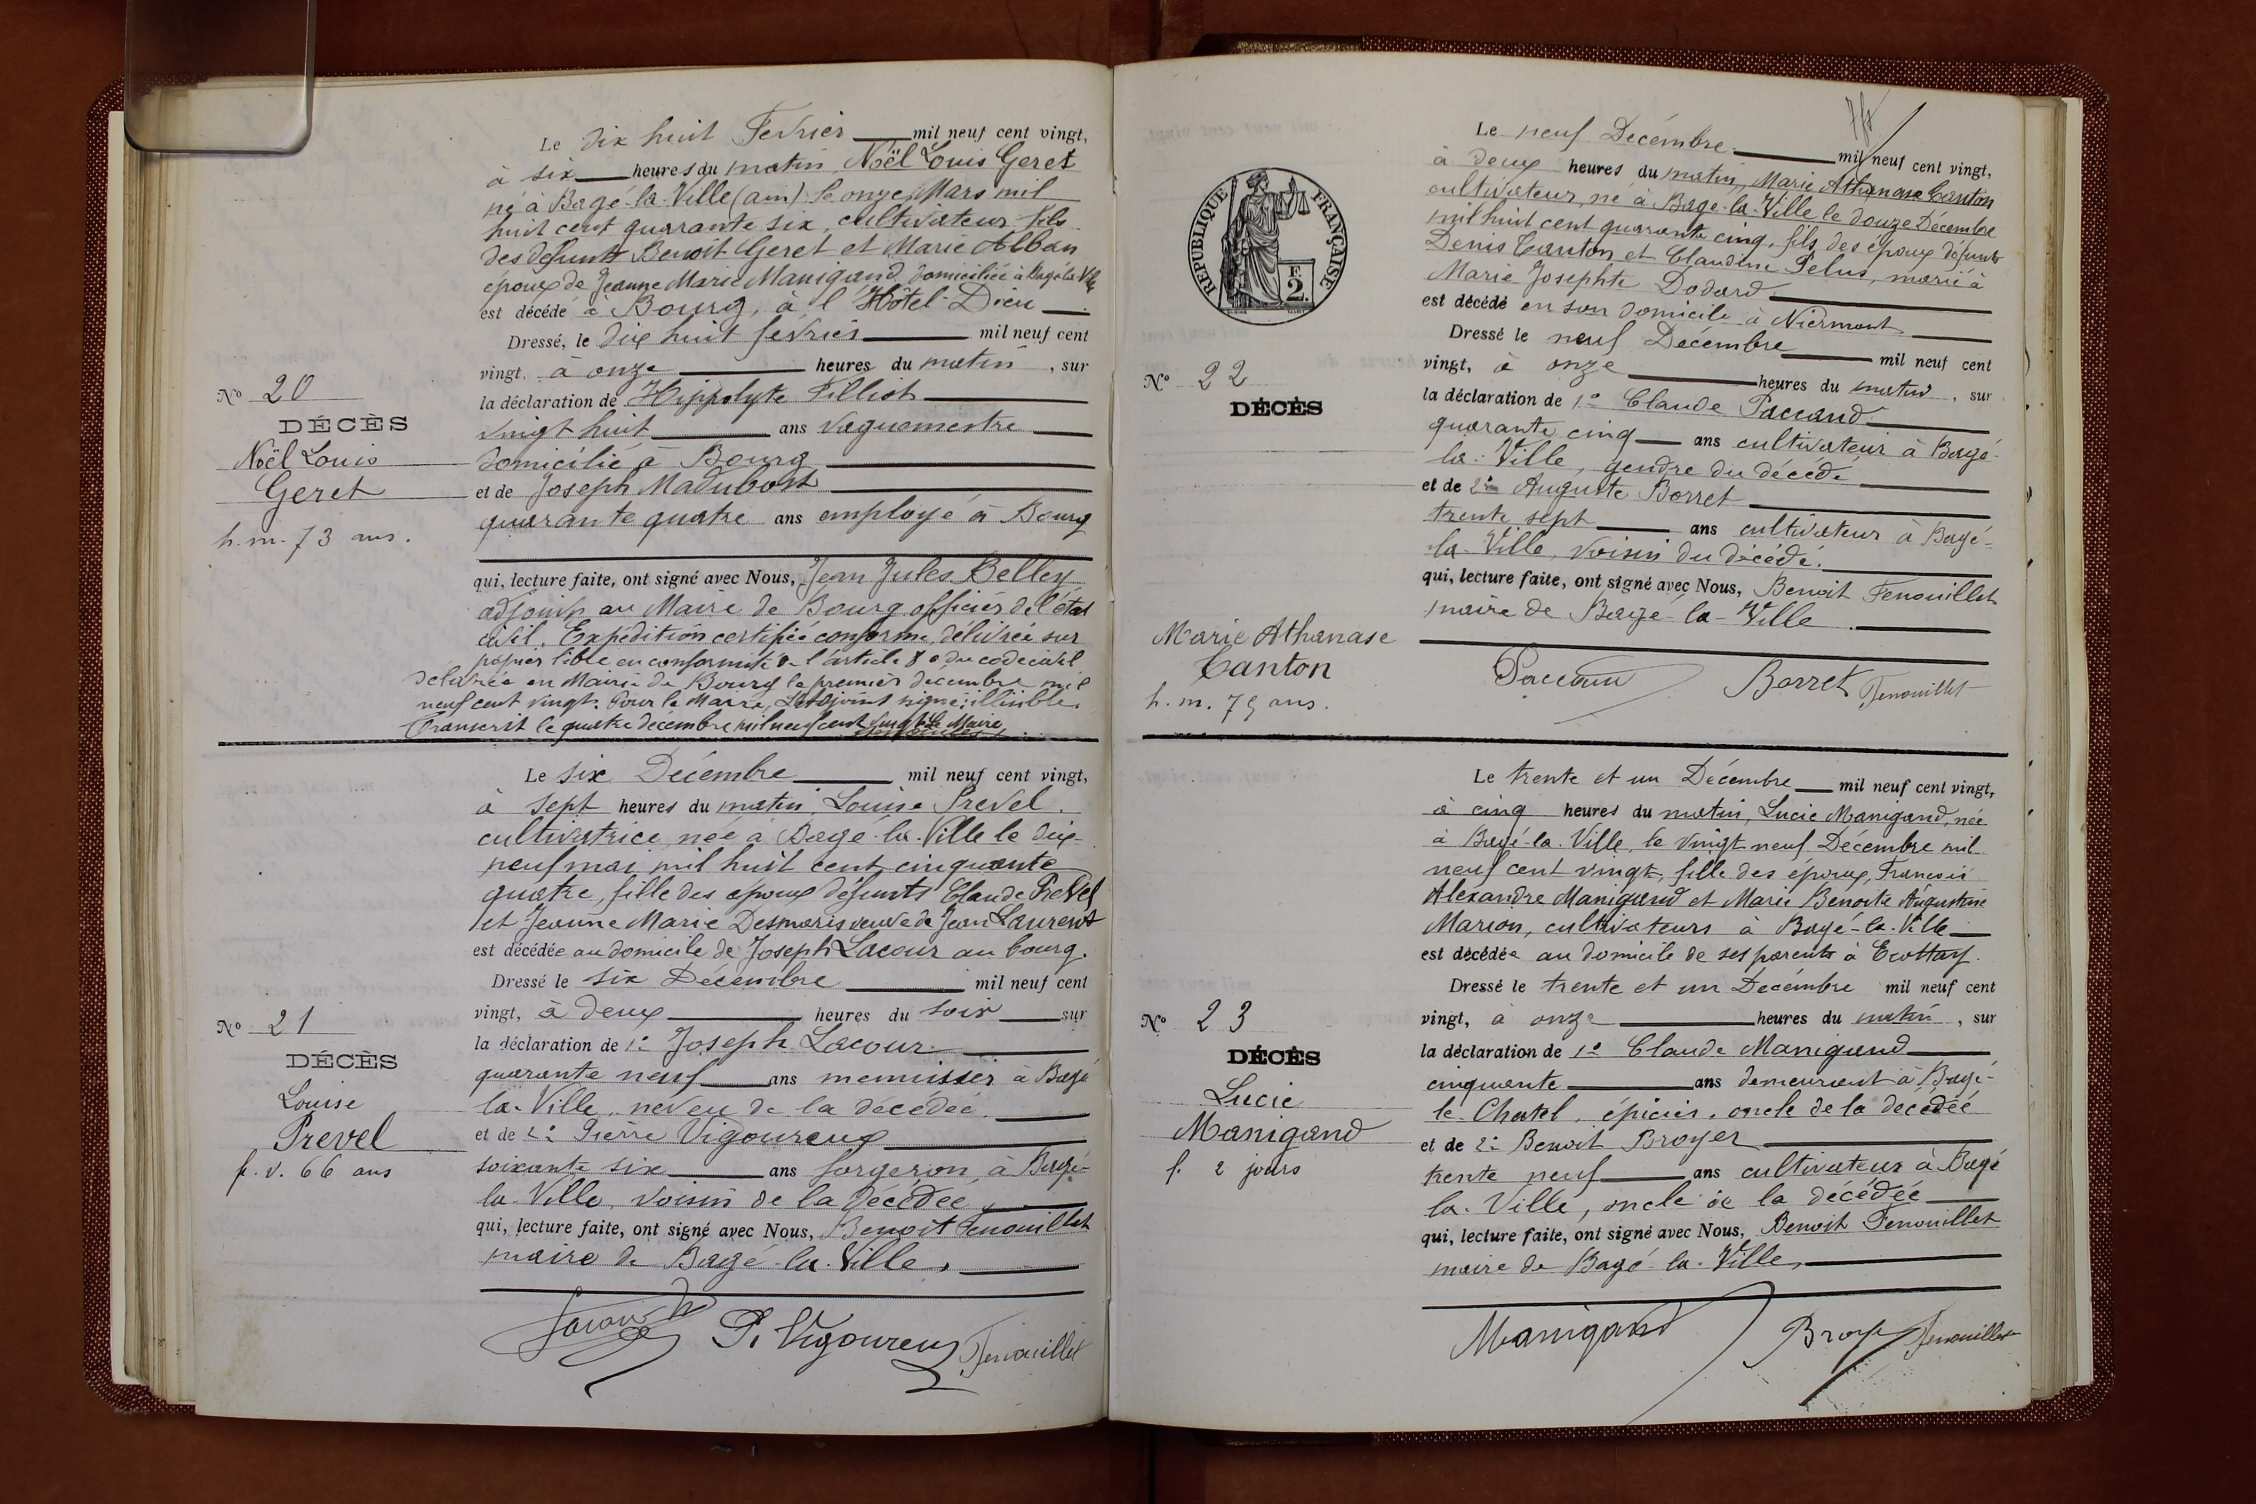 Le dix huit Fevrier mil neuf cent vingt,
à six heures du matin, Noël Louis Geret
né à Bagé-la-Ville (ain) le onze Mars mil
huit cent quarante six, cultivateur fils
des defunts Benoit Geret et Marie Alban
époux de Jeanne Marie Manigand domiciliée à Bagé la Ville
est décédé à Bourg, à l'Hôtel-Dieu
Dressé, le dix huit février mil neuf cent
vingt, à onze heures du matin, sur
la déclaration de Hippolyte Pilliot
vingt huit ans vaguemestre
domicilié à Bourg
et de Joseph Madubost
quarante quatre ans employé à Bourg
qui, lecture faite, ont signé avec Nous, Jean Jules Belley
adjoint au Maire de Bourg officier de l'état
civil. Expédition certifiée conforme délivrée sur
papier libre en conformité de l'article 80 du code civil
délivrée en Mairie de Bourg le premier décembre mil
neuf cent vingt. Pour le Maire, L'adjoint signé: illisible.
Transcrit le quatre décembre mil neuf cent vingt Le Maire
No 20
DÉCÈS
Noël Louis
Geret
h. m. 73 ans.
Le six Décembre mil neuf cent vingt,
à sept heures du matin, Louise Prevel
cultivatrice, née à Bagé-la-Ville le dix-
neuf mai mil huit cent cinquante
quatre, fille des époux défunts Claude Prevel
et Jeanne Marie Desmaris veuve de Jean Laurent
est décédée au domicile de Joseph Lacour au bourg.
Dressé le six Décembre mil neuf cent
vingt, à deux heures du soir sur
la déclaration de 1º Joseph Lacour
quarante neuf ans menuisier à Bagé
la-Ville, neveu de la décédée
et de 2º Pierre Vigoureux
soixante six ans forgeron, à Bagé-
la-Ville, voisin de la décédée,
qui, lecture faite, ont signé avec Nous, Benoit Fenouillet
maire de Bagé-la-Ville,
No 21
DÉCÈS
Louise
Prevel
f. v. 66 ans
Lacour P. Vigoureux Fenouillet
RÉPUBLIQUE FRANÇAISE
F.
2.
Le neuf Décembre mil neuf cent vingt,
à deux heures du matin, Marie Athanase Canton
cultivateur, né à Bagé-la-Ville le douze Décembre
mil huit cent quarante cinq, fils des époux défunts
Denis Canton et Claudine Pelus, marié à
Marie Josephte Dodard
est décédé en son domicile à Niermont
Dressé le neuf Décembre mil neuf cent
vingt, à onze heures du matin, sur
la déclaration de 1º Claude Paccaud
quarante cinq ans cultivateur à Bagé-
la-Ville, gendre du décédé
et de 2º Auguste Borret
trente sept ans cultivateur à Bagé-
la-Ville, voisin du décédé.
qui, lecture faite, ont signé avec Nous, Benoit Fenouillet
maire de Bagé-la-Ville.
No 22
DÉCÈS
Marie Athanase
Canton
h. m. 75 ans.
Paccaud Borret Fenouillet
Le trente et un Décembre mil neuf cent vingt,
à cinq heures du matin, Lucie Manigand, née
à Bagé-la-Ville, le vingt neuf Décembre mil
neuf cent vingt, fille des époux, François
Alexandre Manigand et Marie Benoite Augustine
Marion, cultivateurs à Bagé-la-Ville
est décédée au domicile de ses parents à Ecottay.
Dressé le trente et un Décembre mil neuf cent
vingt, à onze heures du matin, sur
la déclaration de 1º Claude Manigand
cinquante ans demeurant à Bagé-
le-Chatel, épicier, oncle de la décédée
et de 2º Benoit Broyer
trente neuf ans cultivateur à Bagé
la-Ville, oncle de la décédée
qui, lecture faite, ont signé avec Nous, Benoit Fenouillet
maire de Bagé-la-Ville,
No 23
DÉCÈS
Lucie
Manigand
f. 2 jours
Manigand Broyer Fenouillet